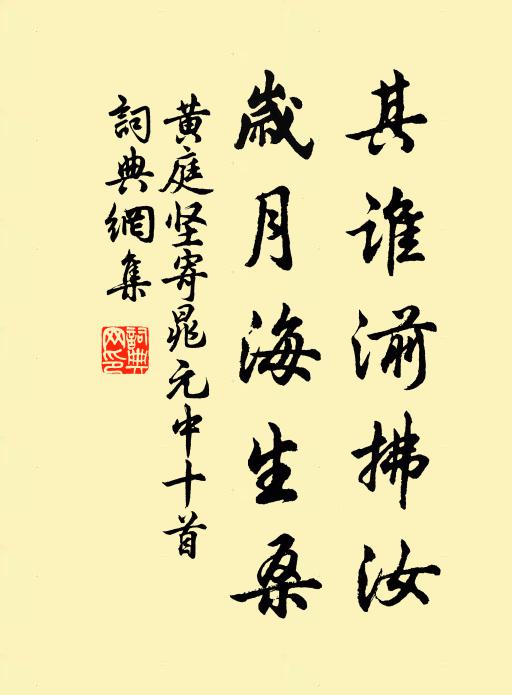 其谁湔拂汝
歲月海生桑
黄庭坚寄晁元中十首
詞典網集
詞典
网印